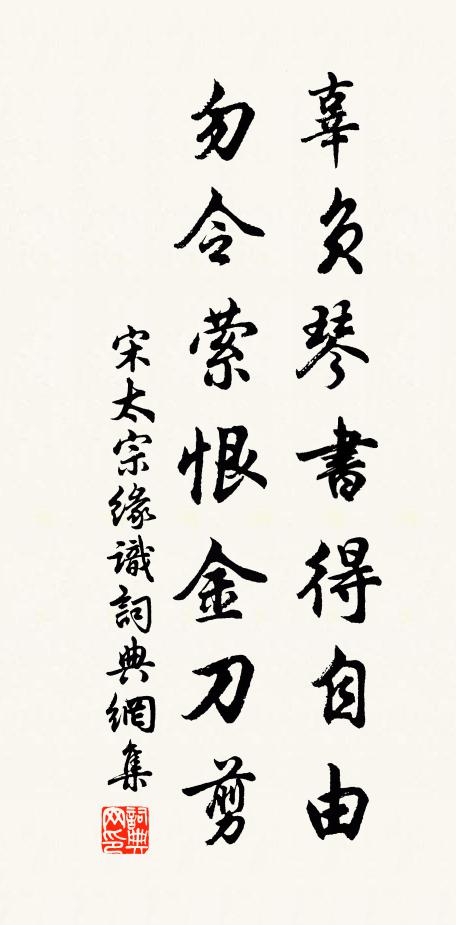 辜負琴書得自由
勿令縈恨金刀剪
宋太宗緣識詞典網集
詞典
网印